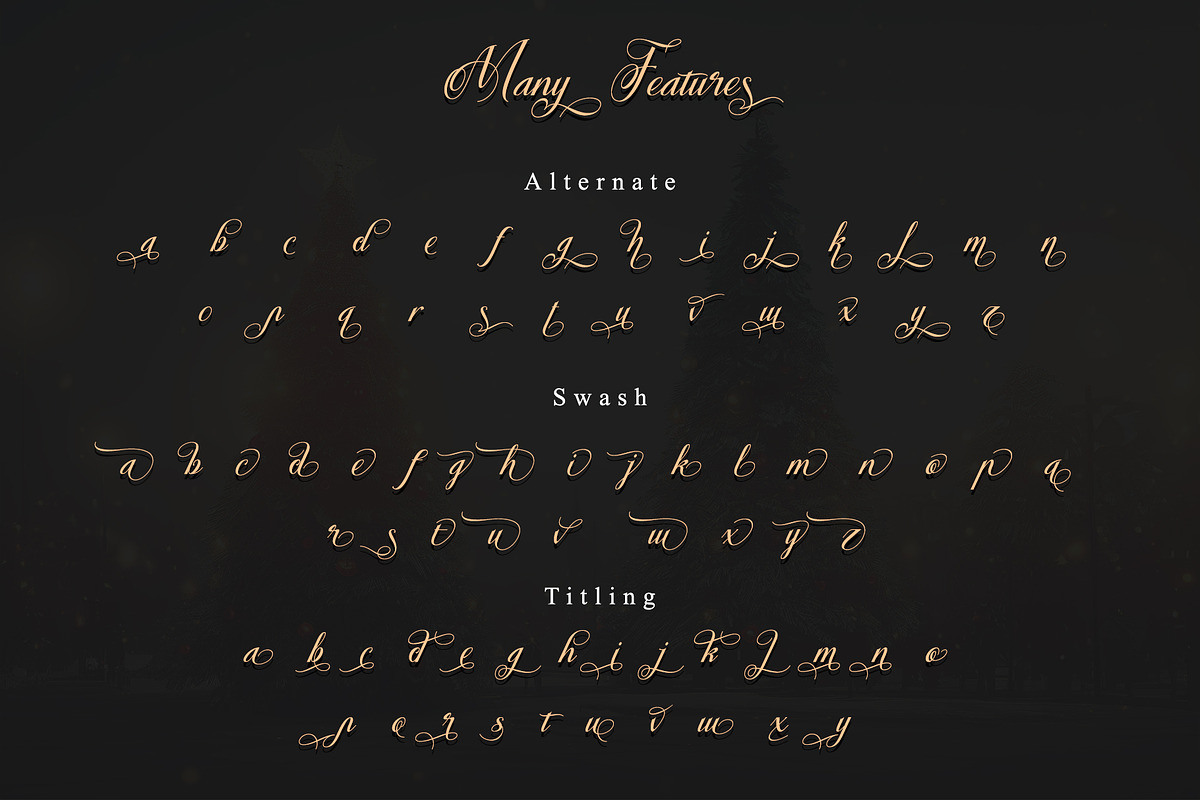 Many Features
Alternate
a b c d e f g h i j k l m n
o p q r s t u v w x y z
Swash
a b c d e f g h i j k l m n o p q
r s t u v w x y z
Titling
a b c d e g h i j k l m n o
p q r s t u v w x y